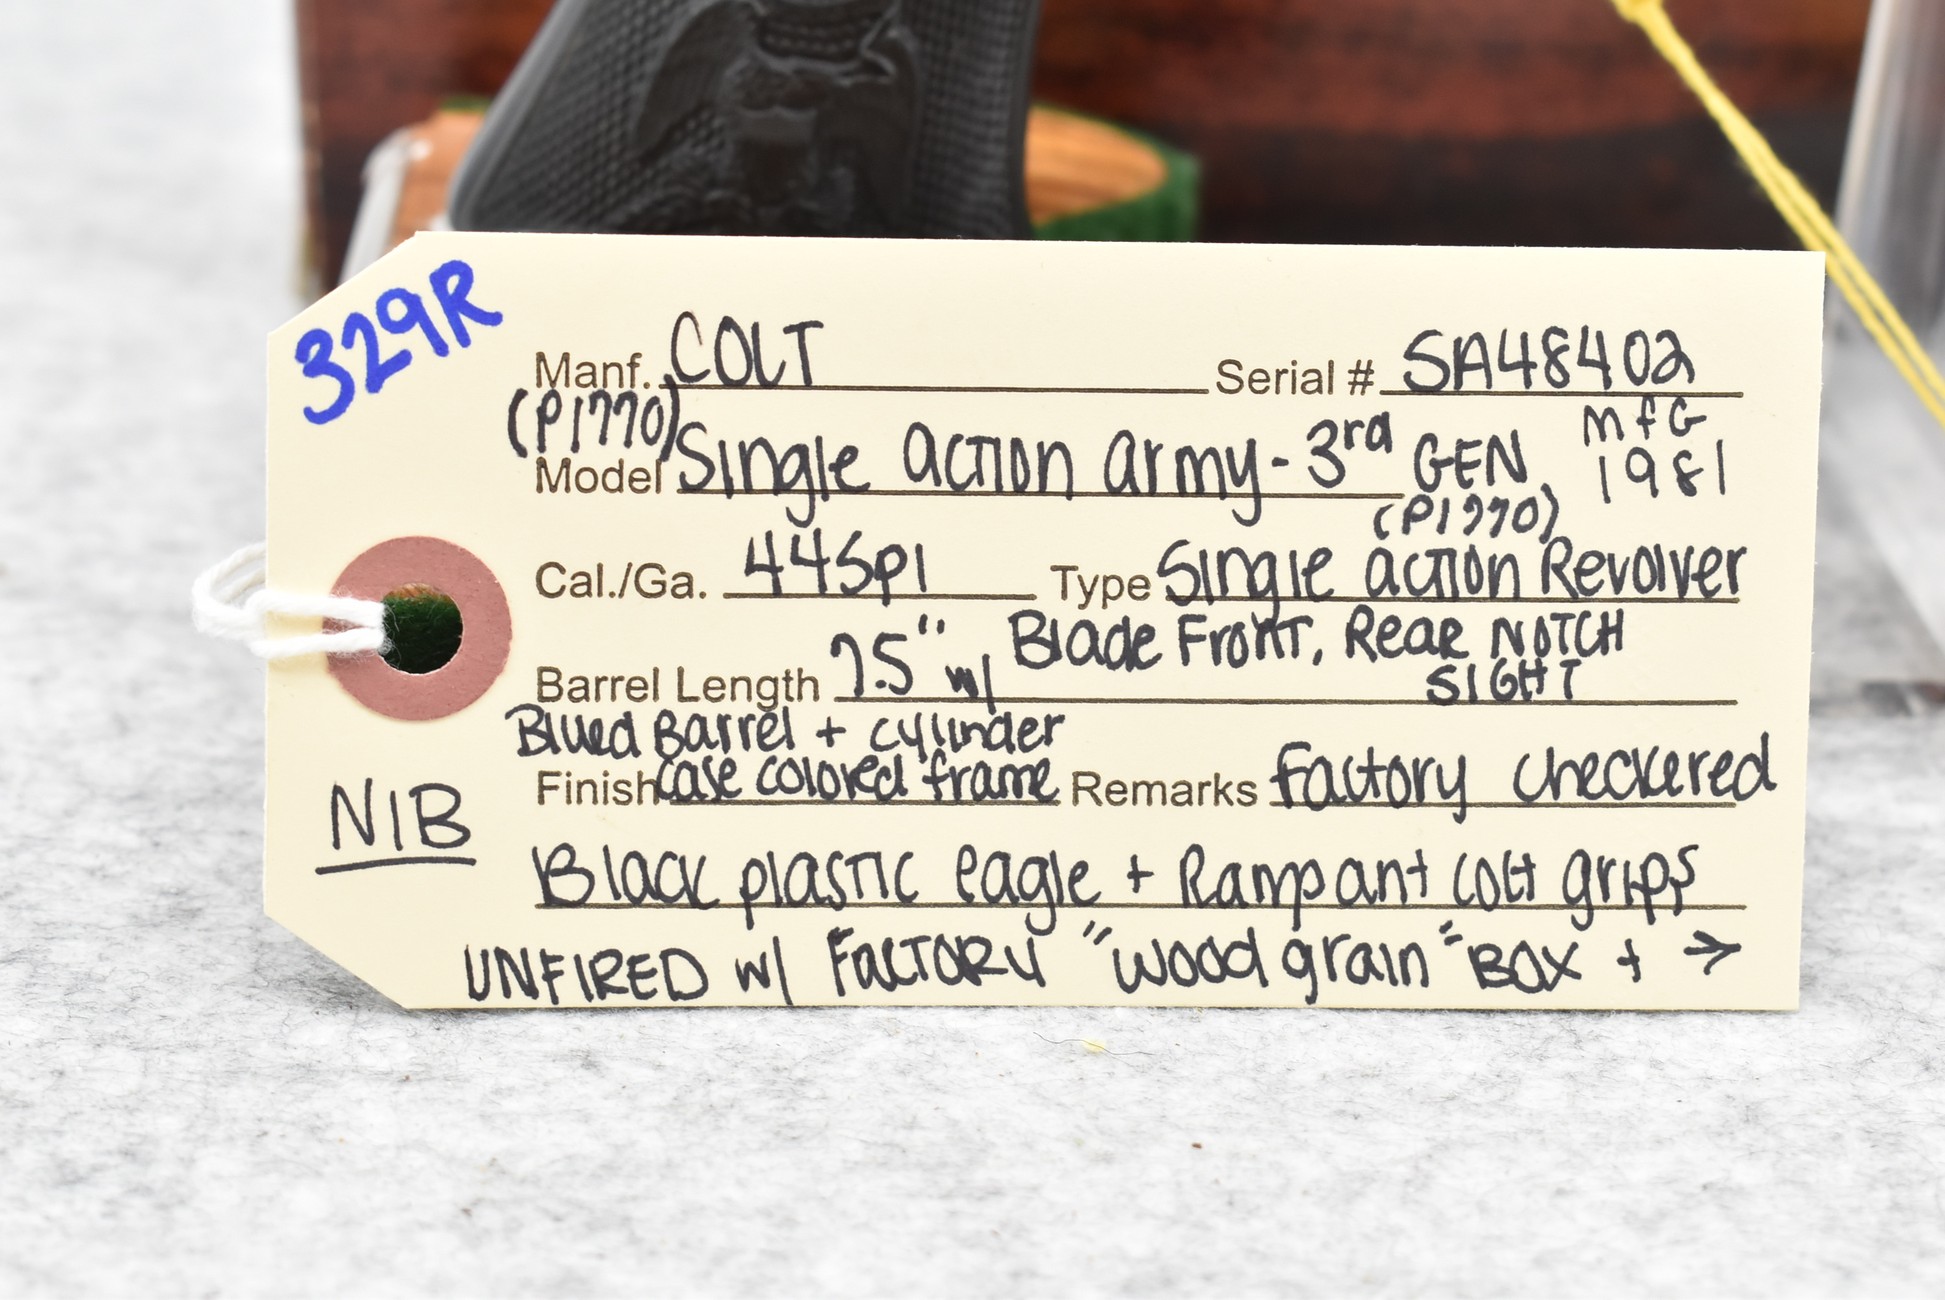 329R
Manf. COLT Serial # SA48402
(P1770) MFG
Model Single action army - 3rd GEN 1981
(P1770)
Cal./Ga. 44Spl Type Single action Revolver
Barrel Length 7.5" w/ Blade Front, Rear NOTCH
SIGHT
Blued Barrel + cylinder
Finish case colored frame Remarks factory checkered
NIB
Black plastic eagle + Rampant colt grips
UNFIRED w/ FACTORY "wood grain" BOX + →